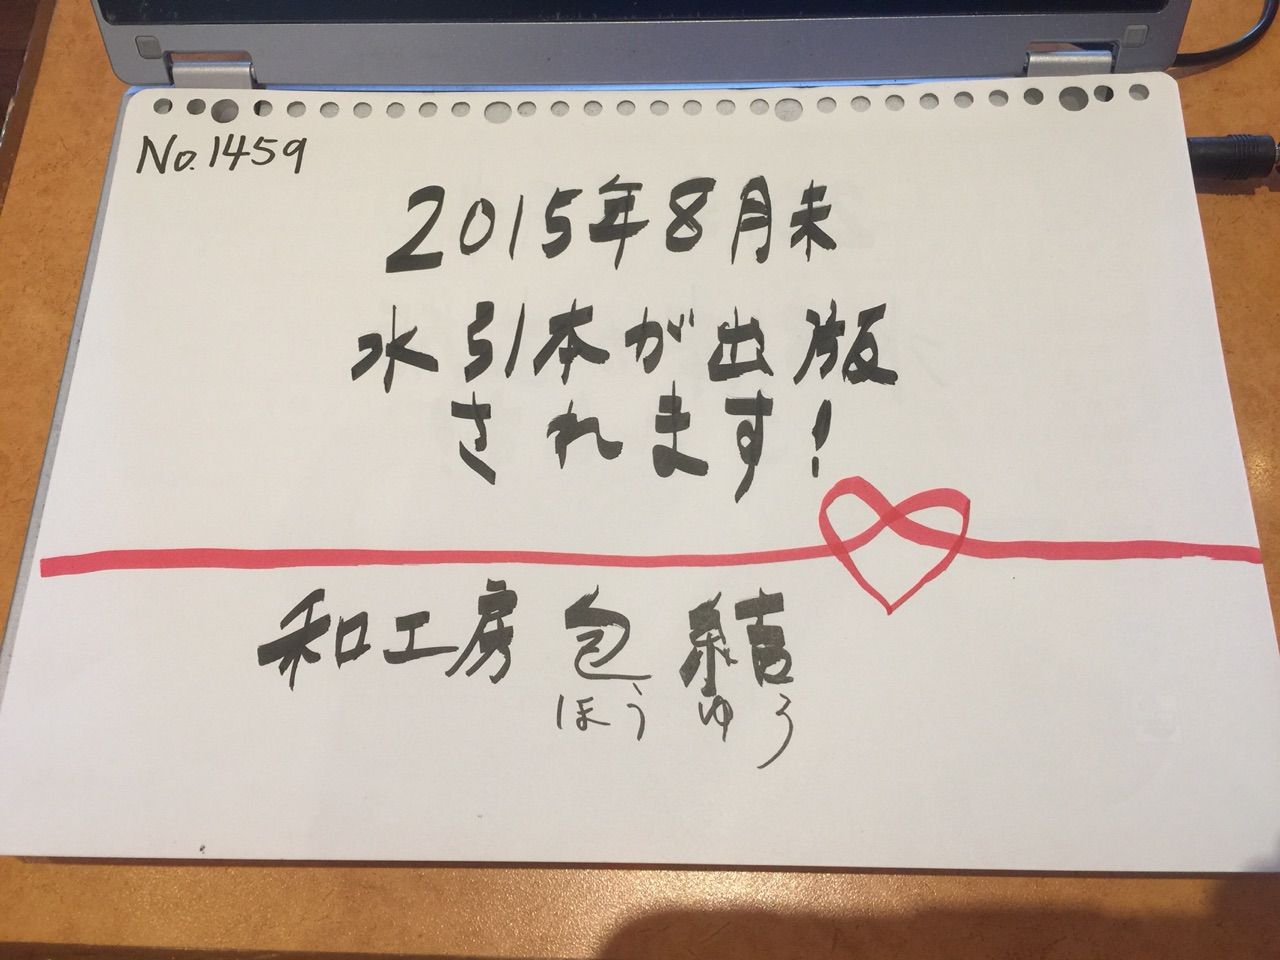 No.1459
2015年8月末
水引本が出版
されます!
和工房 包結
ほう ゆう